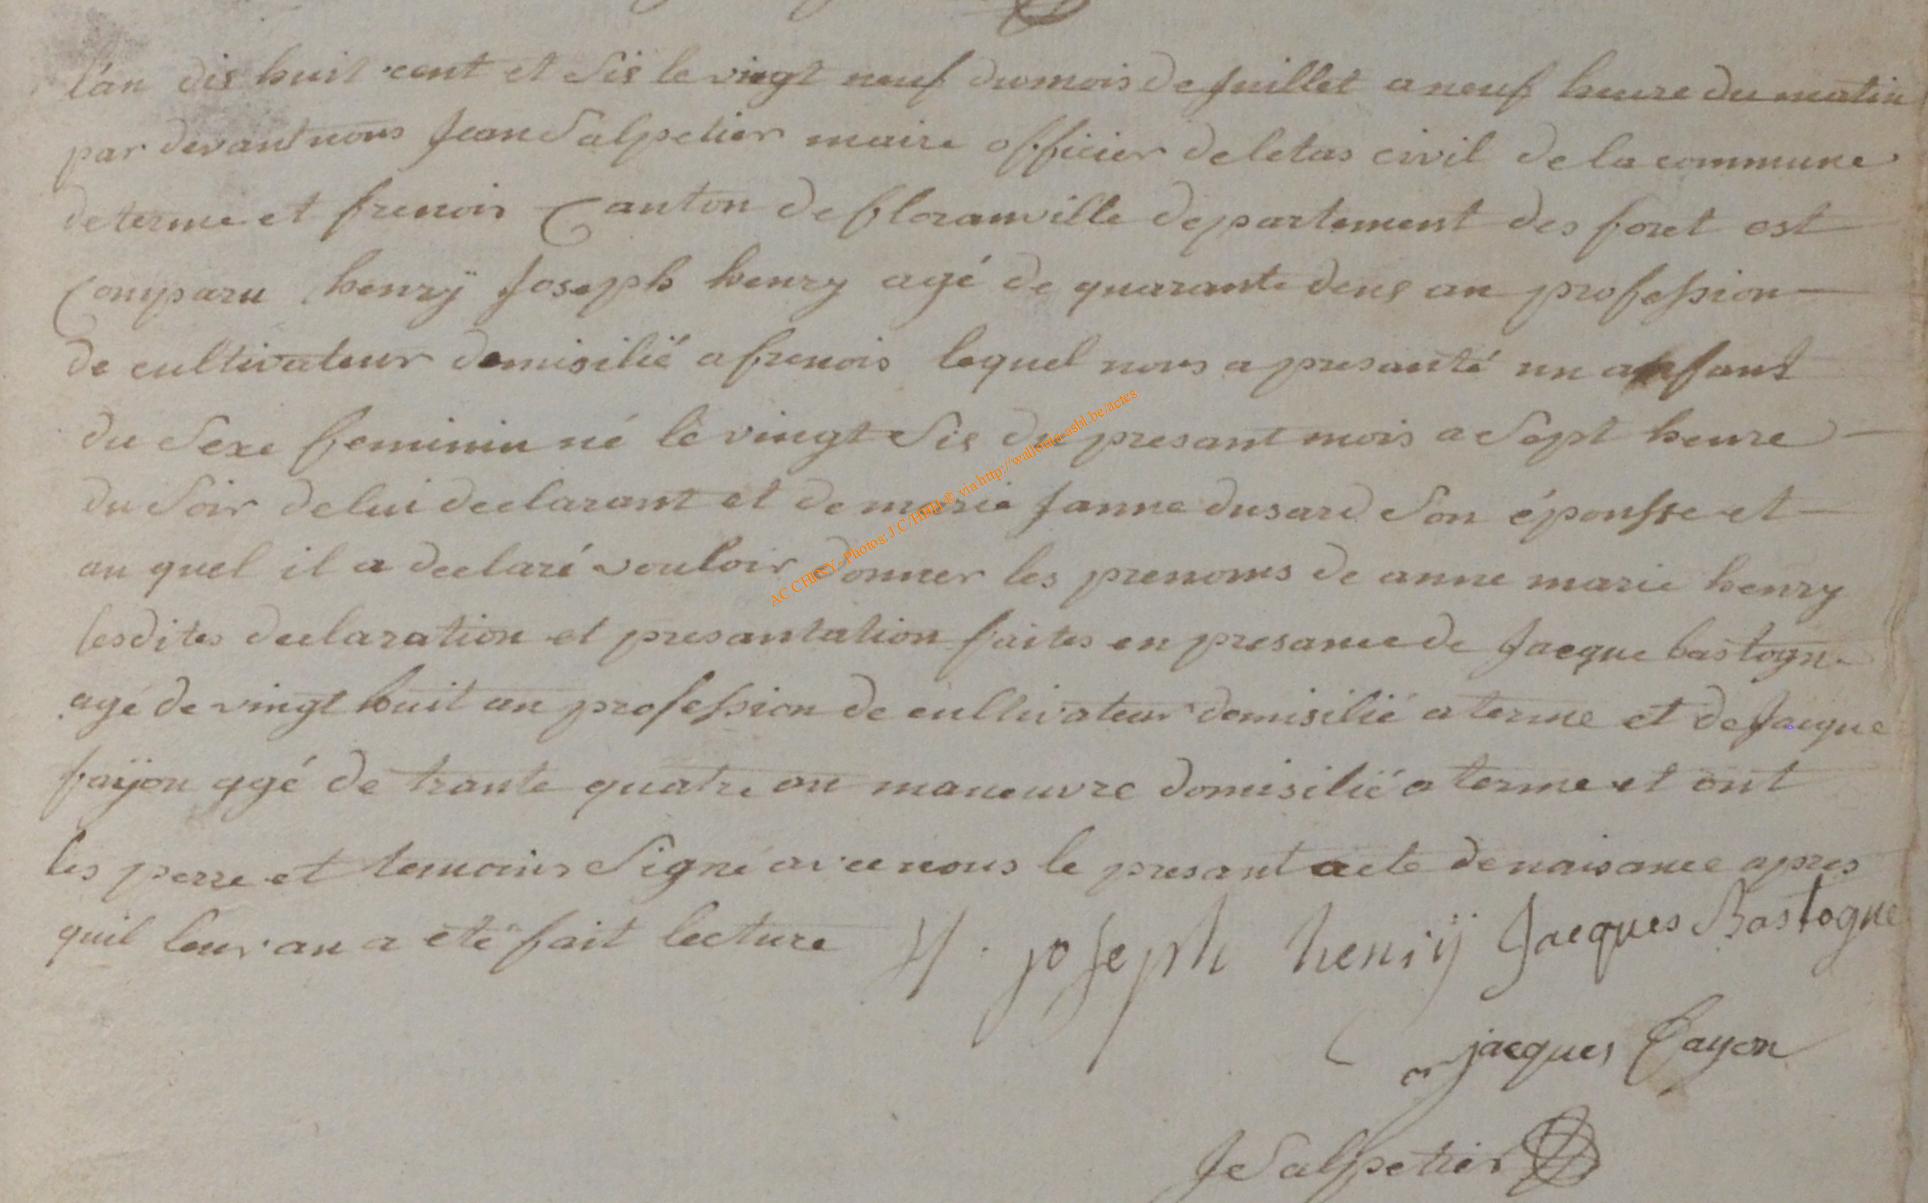 l'an dis huit cent et sis le vingt neuf du mois de Juillet a neuf heure du matin
par devant nous Jean Salpetier maire officier de letas civil de la commune
de terme et frenois Canton de floranville departement des foret est
Comparu henrÿ Joseph henry agé de quarante deus an profession
de cultivateur domisilié a frenois lequel nous a presanté un anfant
du Sexe feminin né lè vingt sis du presant mois a Sept heure
du Soir de lui declarant et de marie Janne dusard Son épousse et
au quel il a declaré vouloir donner les prenoms de anne marie henry
lesdites declaration et presantation faites en presance de Jacque bastogne
agé de vingt huit an profession de cultivateur domisilié a terme et de Jacque
faÿon agé de trante quatre an maneuvre domisilié a terme et ont
les perre et temoins Signé avec nous le presant acte de naisance apres
quil leur an a eté fait lecture H. joseph henrÿ Jacques Bastogne
jacques fayon
J Salpetier
AC CHINY - Photos: J.C. via http://wallonia-asbl.be/actes